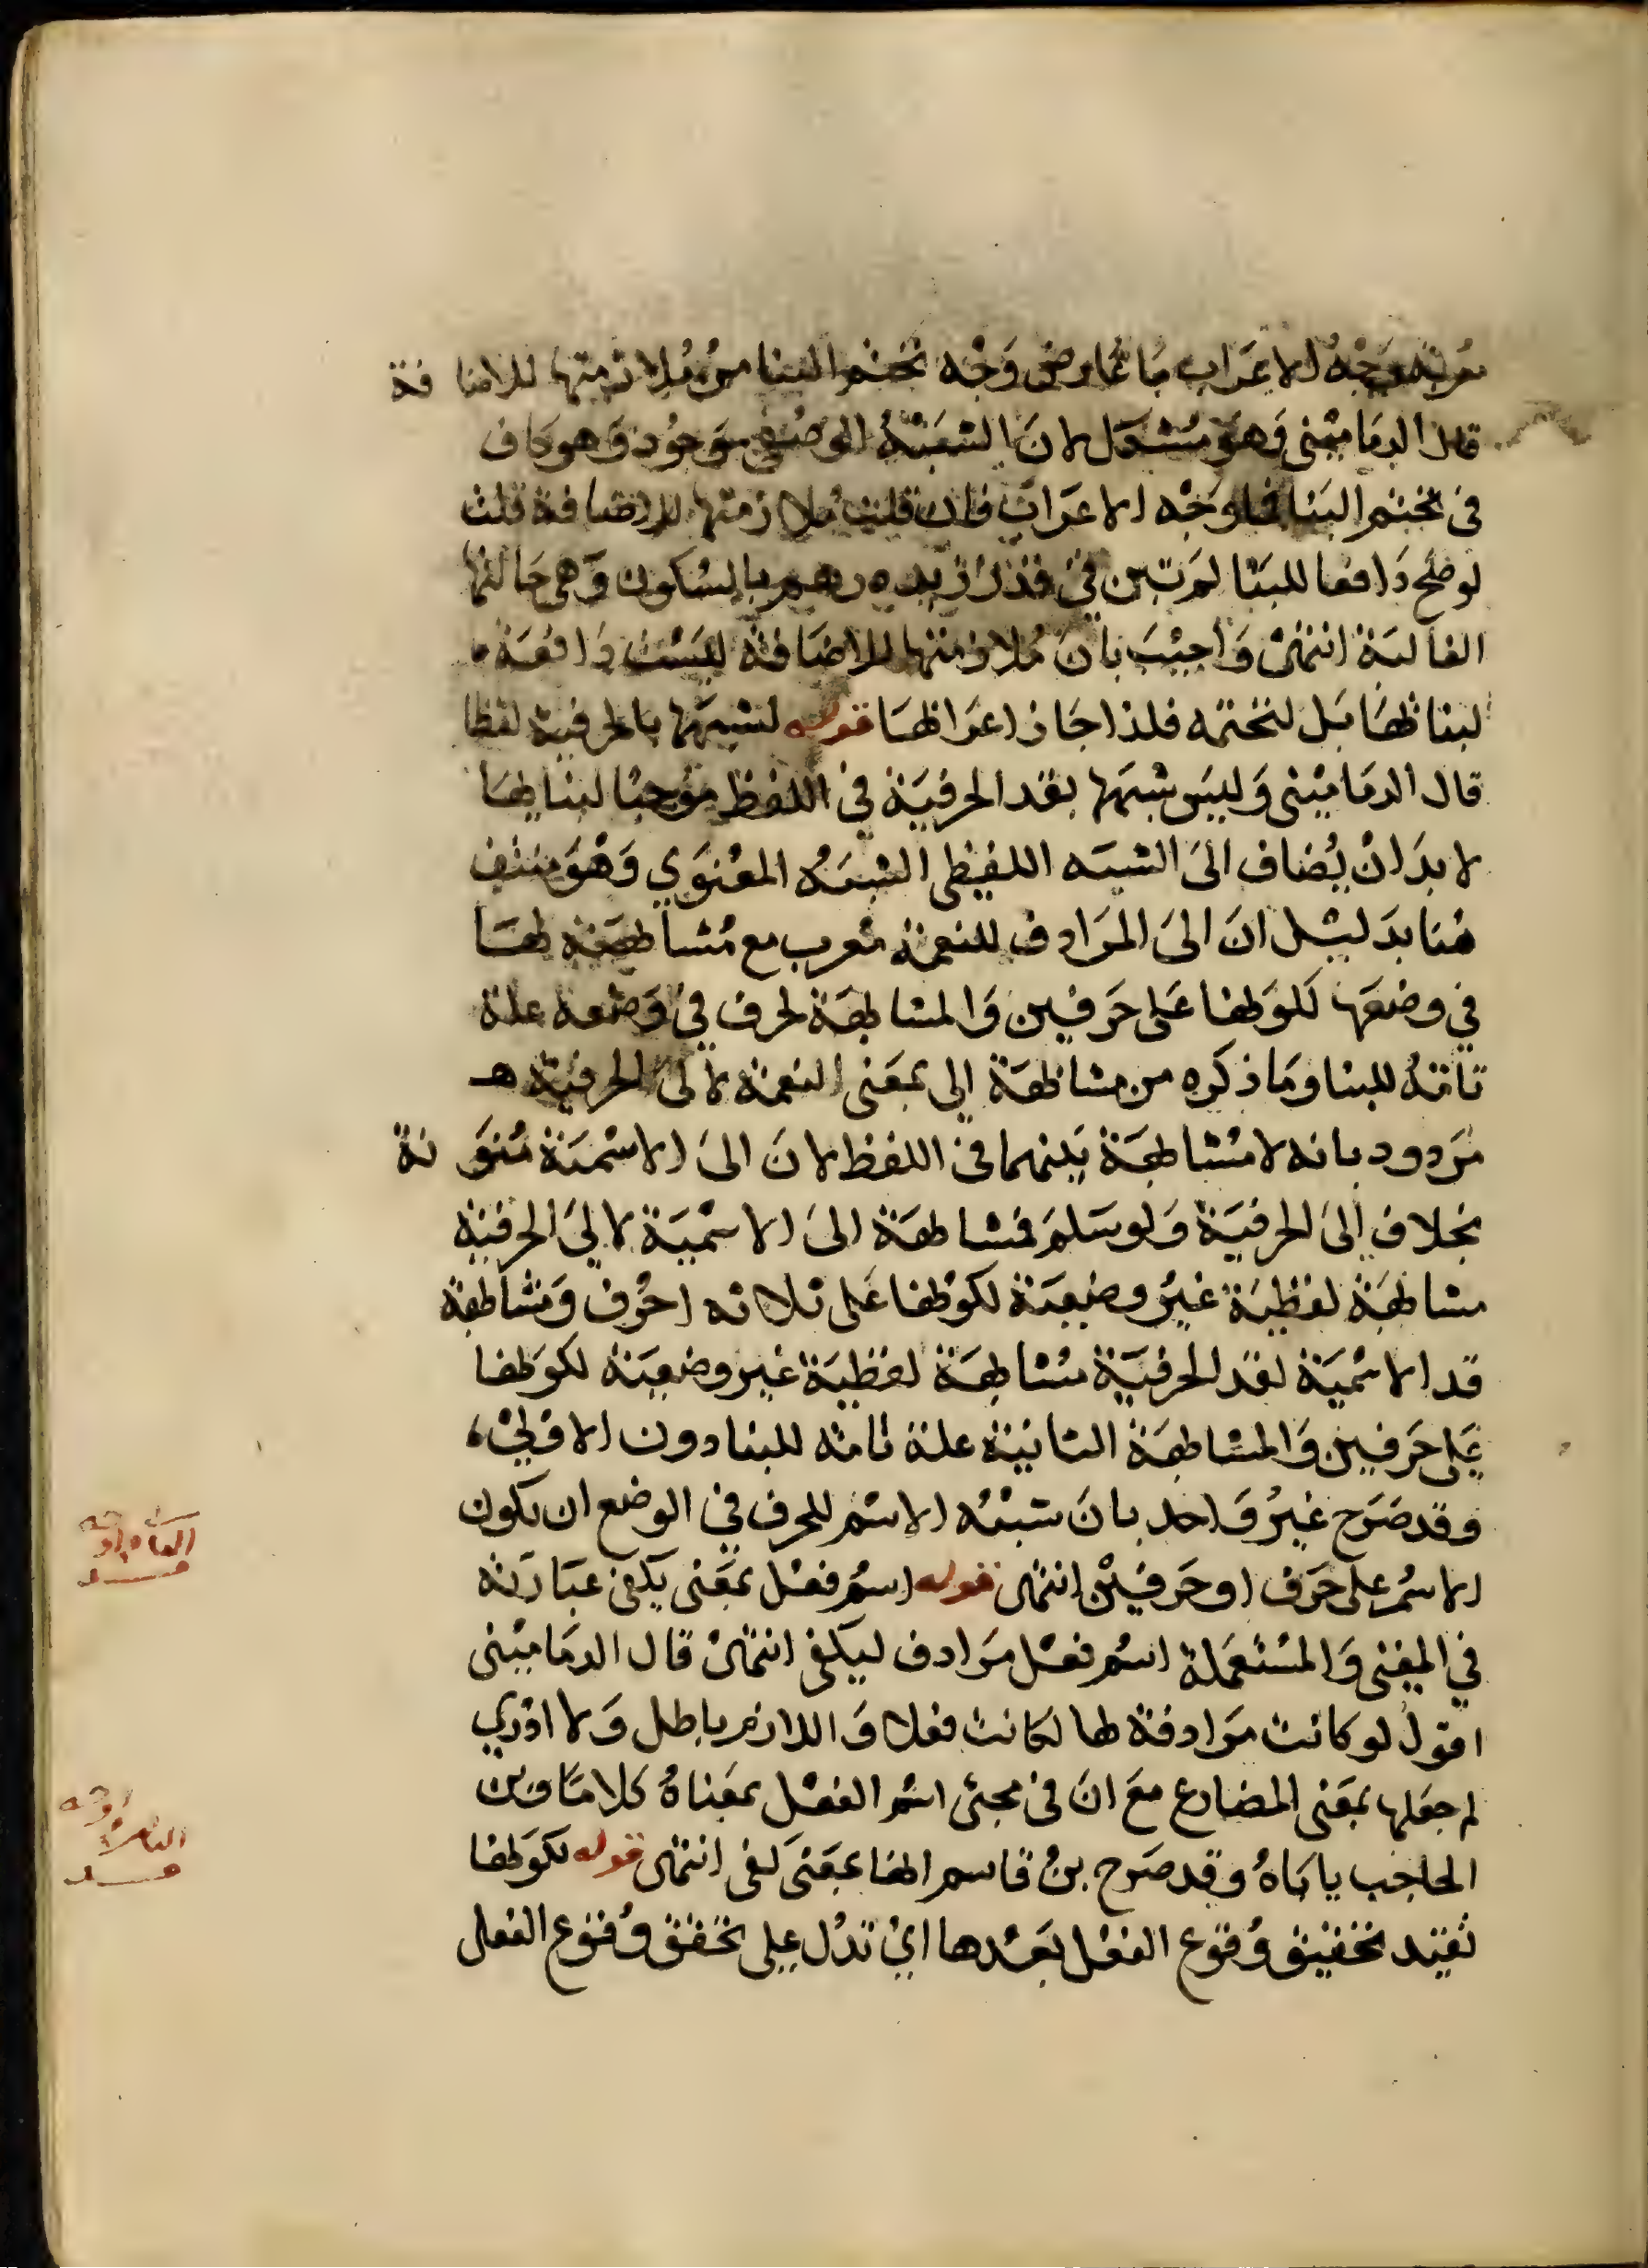 معربة وجه الاعراب ما عارض وجه تحتم البنا من ملازمتها للاضافة
قال الدمامينى وهو مشكل لان الشبه الوضعى موجود وهو كاف
فى تحتم البنا فما وجه الاعراب فان قلت ملازمتها للاضافة قلت
لو صلح دافعا للبنا لم تبن في قد زيد درهم بالسكون وهى حالتها
الغالبة انتهى واجيب بان ملازمتها للاضافة ليست دافعة
لبنائها بل لتحتمه فلذا جاز اعرابها قوله لشبهها بالحرفية لفظا
قال الدمامينى وليس شبهها بقد الحرفية في اللفظ موجبا لبنائها
لا بد ان يضاف الى الشبه اللفظى الشبه المعنوي وهو منتف
هنا بدليل ان الى المرادف للنعمة معرب مع مشابهته لها
في وضعها لكونها على حرفين والمشابهة لحرف في وضعه علة
تامة للبنا وما ذكره من مشابهة الى بمعنى النعمة لالى الحرفية هـ
مردود بانه لا مشابهة بينهما فى اللفظ لان الى الاسمية منونة
بخلاف الى الحرفية ولو سلم فمشابهة الى الاسمية لالى الحرفية
مشابهة لفظية غير وضعية لكونها على ثلاثه احرف ومشابهة
قد الاسمية لقد الحرفية مشابهة لفظية غير وضعية لكونها
على حرفين والمشابهة الثانية علة تامة للبنا دون الاولى
وقد صرح غير واحد بان شبه الاسم للحرف في الوضع ان يكون
الاسم على حرف او حرفين انتهى قوله اسم فعل بمعنى يكفى عبارته
في المغنى والمستعملة اسم فعل مرادف ليكفى انتهى قال الدمامينى
اقول لو كانت مرادفة لها لكانت فعلا واللازم باطل ولا ادري
لم جعلها بمعنى المضارع مع ان فى مجئ اسم الفعل بمعناه كلاما وبن
الحاجب ياباه وقد صرح بن قاسم انها بمعنى كفى انتهى قوله لكونها
تفيد تحقيق وقوع الفعل بعدها اي تدل على تحقق وقوع الفعل